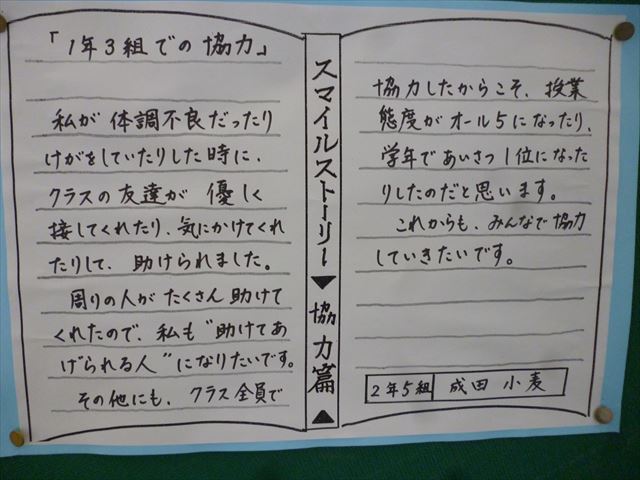 「1年3組での協力」
私が体調不良だったり
けがをしていたりした時に、
クラスの友達が優しく
接してくれたり、気にかけてくれ
たりして、助けられました。
周りの人がたくさん助けて
くれたので、私も"助けてあ
げられる人"になりたいです。
その他にも、クラス全員で
スマイルストーリー▼協力篇▲
協力したからこそ、授業
態度がオール5になったり、
学年であいさつ1位になった
りしたのだと思います。
これからも、みんなで協力
していきたいです。
2年5組 成田 小麦